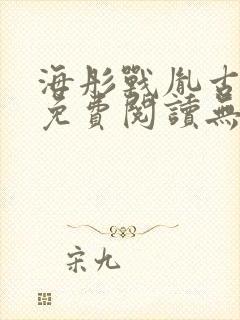 海彤戰胤古
免費閱讀無
宋九